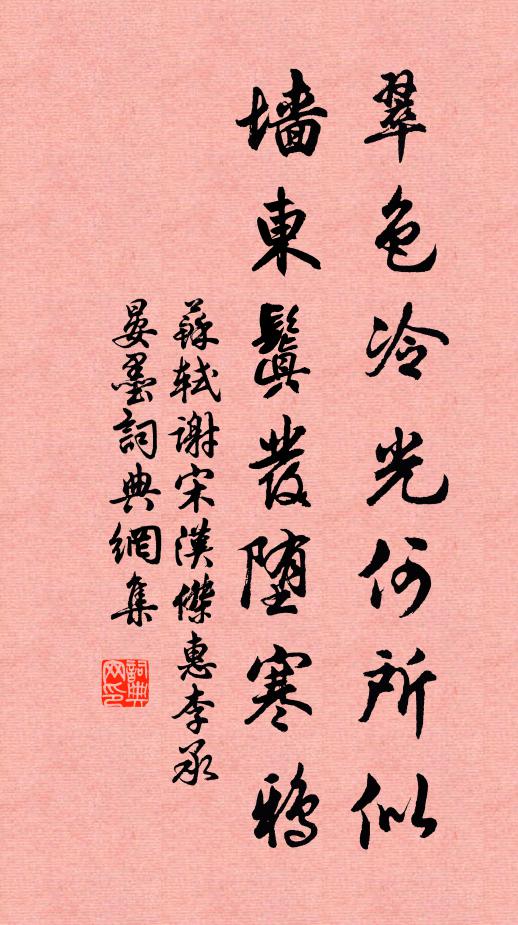 翠色冷光何所似
墙東鬒發堕寒鴉
蘇軾谢宋漢傑惠李承
晏墨詞典網集
詞典网印